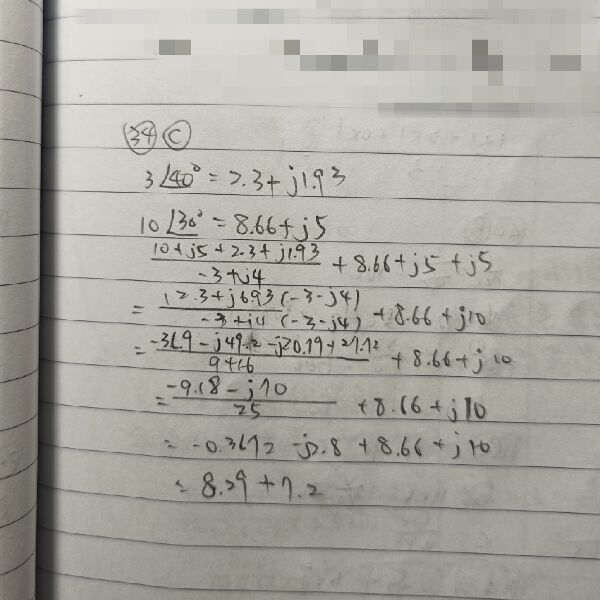 34 C
3∠40° = 2.3 + j1.93
10∠30° = 8.66 + j5
(10 + j5 + 2.3 + j1.93) / (-3 + j4) + 8.66 + j5 + j5
= (12.3 + j6.93 (-3 - j4)) / (-3 + j4 (-3 - j4)) + 8.66 + j10
= (-36.9 - j49.2 - j20.79 + 27.72) / (9 + 16) + 8.66 + j10
= (-9.18 - j70) / 25 + 8.66 + j10
= -0.3672 - j2.8 + 8.66 + j10
= 8.29 + 7.2